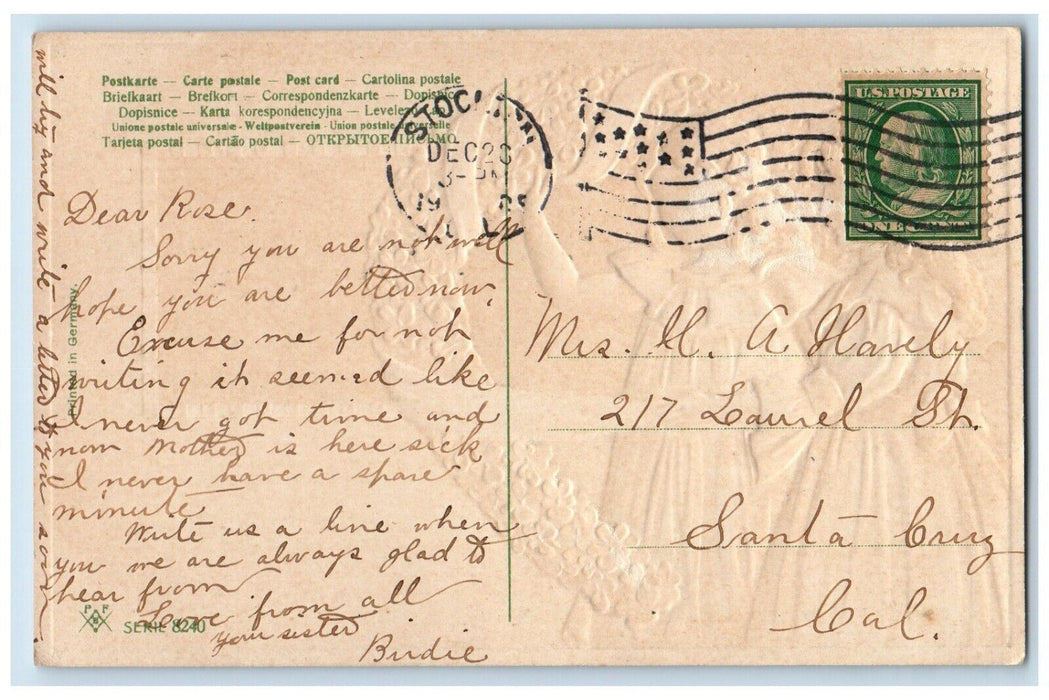 Postkarte — Carte postale — Post card — Cartolina postale
Briefkaart — Brefkort — Correspondenzkarte — Dopisnice
Dopisnice — Karta korespondencyjna — Levelező-Lap
Unione postale universale - Weltpostverein - Union postale universelle
Tarjeta postal — Cartão postal — ОТКРЫТОЕ ПИСЬМО
STOC
DEC 26
19
U.S. POSTAGE
ONE CENT
Dear Rose.
Sorry you are not well
hope you are better now.
Excuse me for not
writing it seemed like
I never got time and
now Mother is here sick
I never have a spare
minute
Write us a line when
you we are always glad to
hear from
Love from all
your sister
Birdie
will try and write a letter to you soon
Mrs. H. A Havely
217 Laurel St.
Santa Cruz
Cal.
Printed in Germany.
P F B
SERIE 8240